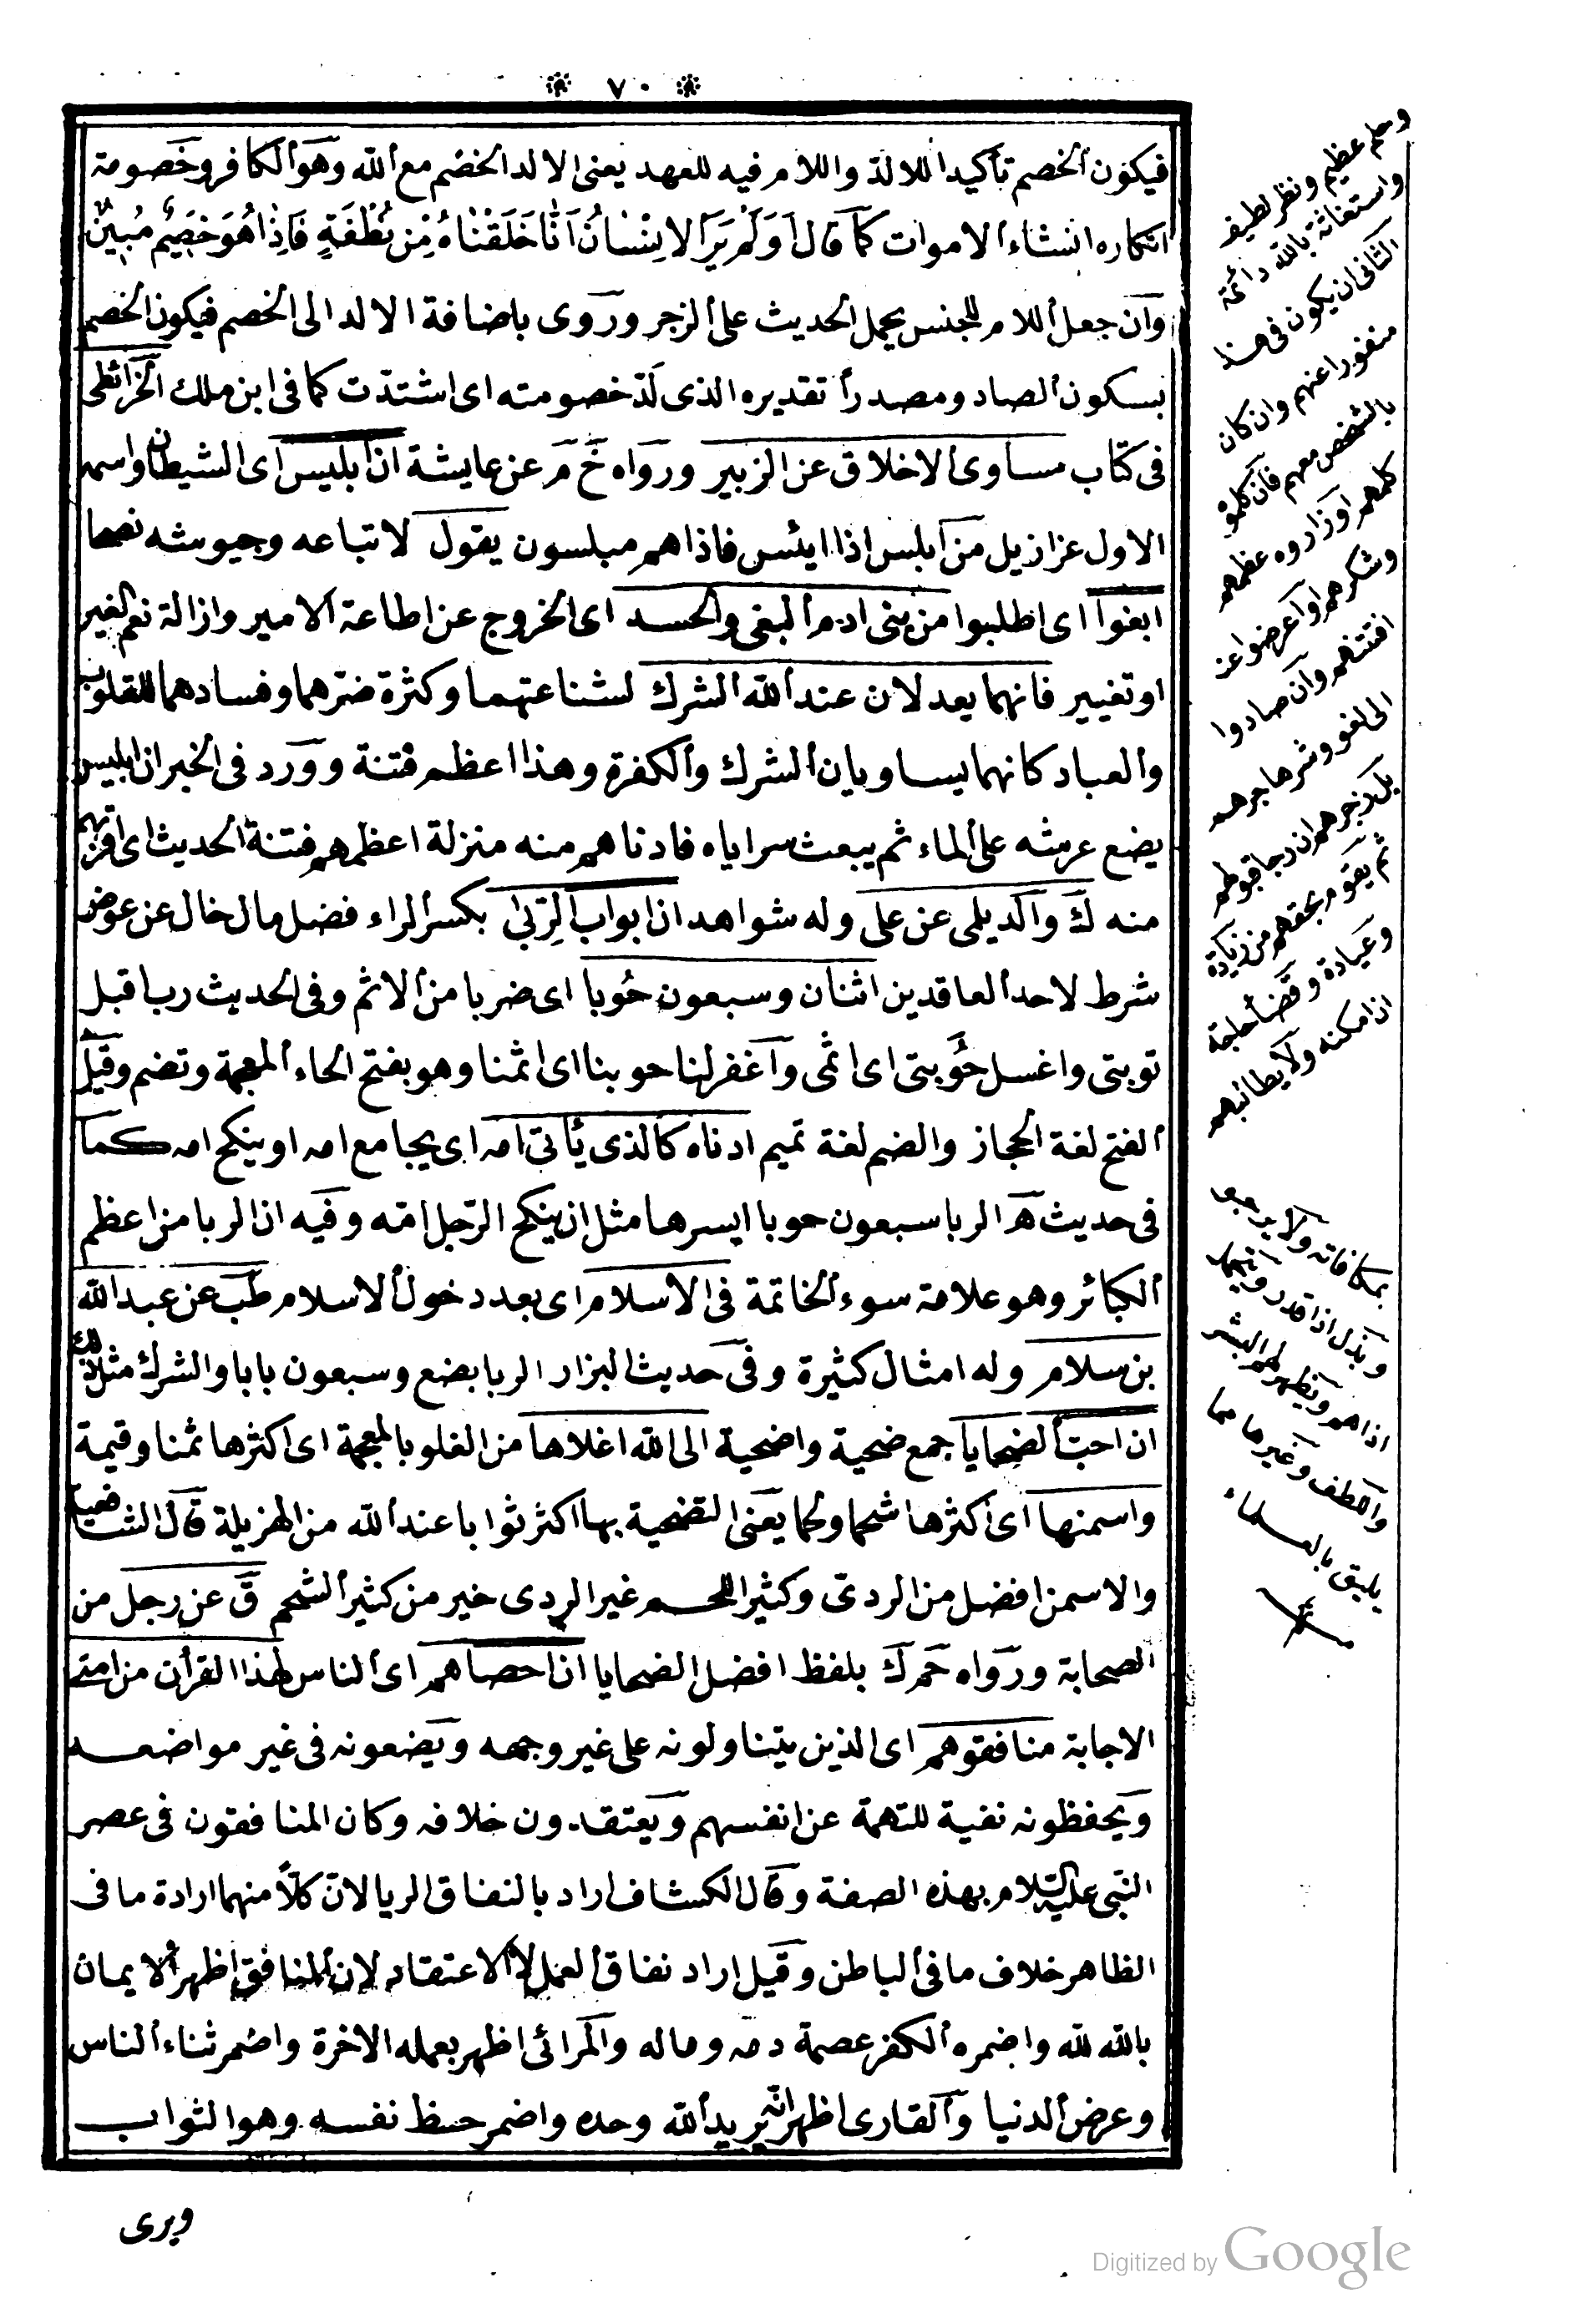 ٧٠
فيكون الخصم تأكيدا للالدّ واللام فيه للعهد يعنى الالد الخصم مع الله وهو الكافر وخصومة
انكاره انشاء الاموات كما قال اَوَلَمْ يَرَ الاِنْسَانُ اَنَّا خَلَقْنَاهُ مِنْ نُطْفَةٍ فَاِذَا هُوَ خَصِيمٌ مُبِينٌ
وان جعل اللام للجنس يحمل الحديث على الزجر وروى باضافة الالد الى الخصم فيكون الخصم
بسكون الصاد ومصدرا تقديره الذى لدّ خصومته اى اشتدّت كما فى ابن ملك الخرائطى
فى كتاب مساوى الاخلاق عن الزبير ورواه خ م عن عايشة ان ابليس اى الشيطان واسمه
الاول عزازيل من ابلس اذا ايئس فاذا هم مبلسون يقول لاتباعه وجيوشه نصحا
ابغوا اى اطلبوا من بنى ادم البغى والحسد اى الخروج عن اطاعة الامير وازالة نعم الغير
او تغيير فانهما يعدلان عند الله الشرك لشناعتهما وكثرة ضرّهما وفسادهما للقلوب
والعباد كانهما يساويان الشرك والكفرة وهذا اعظم فتنة وورد فى الخبر ان ابليس
يضع عرشه على الماء ثم يبعث سراياه فادناهم منه منزلة اعظمهم فتنة الحديث اى اقربهم
منه ك والديلمى عن على وله شواهد ان ابواب الرِّبى بكسر الراء فضل مال خال عن عوض
شرط لاحد العاقدين اثنان وسبعون حُوبا اى ضربا من الاثم وفى الحديث رب اقبل
توبتى واغسل حُوبتى اى اثمى واغفر لنا حوبنا اى اثمنا وهو بفتح الحاء المعجمة وتضم وقيل
الفتح لغة الحجاز والضم لغة تميم ادناه كالذى يأتى امه اى يجامع امه او ينكح امه كما
فى حديث هـ الربا سبعون حوبا ايسرها مثل ان ينكح الرّجل امّه وفيه ان الربا من اعظم
الكبائر وهو علامة سوء الخاتمة فى الاسلام اى بعد دخول الاسلام طب عن عبد الله
بن سلام وله امثال كثيرة وفى حديث البزار الربا بضع وسبعون بابا والشرك مثل ذلك
ان احبّ الضحايا جمع ضحية واضحية الى الله اغلاها من الغلو بالمعجمة اى اكثرها ثمنا وقيمة
واسمنها اى اكثرها شحما ولحما يعنى التضحية بها اكثر ثوابا عند الله من الهزيلة قال الشافعية
والاسمن افضل من الردىّ وكثير اللحم غير الردى خير من كثير الشحم ق عن رجل من
الصحابة ورواه حم ك بلفظ افضل الضحايا ان احصاهم اى الناس لهذا القرأن من امتى
الاجابة منافقوهم اى الذين يتناولونه على غير وجهه ويضعونه فى غير مواضعه
ويحفظونه نفية للتهمة عن انفسهم ويعتقدون خلافه وكان المنافقون فى عصر
النّبى عليه السّلام بهذه الصفة وقال الكشاف اراد بالنفاق الريا لانّ كلاّ منهما ارادة ما فى
الظاهر خلاف ما فى الباطن وقيل اراد نفاق العمل لا الاعتقاد لان المنافق اظهر الايمان
بالله لله واضمره الكفر عصمة دمه وماله والمرائى اظهر بعمله الاخرة واضمر ثناء الناس
وعرض الدنيا والقارى اظهر انّه يريد الله وحده واضمر حظ نفسه وهو الثواب
ويرى
وحلم عظيم ونظر لطيف
واستغاثة بالله دائمة
الثانى ان يكون فى هذا
منفورا عنهم وان كان
بالشخص معهم فان كلموا
كلمهم او زاروه عظمهم
وشكرهم او اعرضوا عنه
اغتنمهم وان صادوا
الى لغو وشر هاجرهم
بل زجرهم ان رجا قبولهم
ثم يقوم بحقهم من زيارة
وعيادة وقضاء حاجة
اذا مكنه ولا يطالبهم
بمكافاته ولا يرجو
ويبذل اذا قدر ويتحمل
اذاهم ويظهر لهم البشر
واللطف وغيرها مما
يليق بالعلماء
Digitized by Google